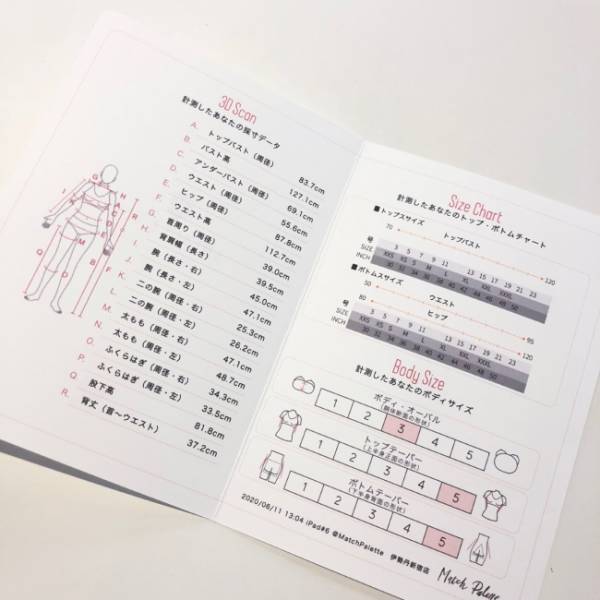 3D Scan
計測したあなたの採寸データ
A. トップバスト（周径） 83.7cm
B. バスト高 127.1cm
C. アンダーバスト（周径） 69.1cm
D. ウエスト（周径） 55.6cm
E. ヒップ（周径） 87.8cm
F. ウエスト高 112.7cm
G. 首周り（周径） 39.0cm
H. 背肩幅（長さ） 39.5cm
I. 腕（長さ・右） 45.0cm
J. 腕（長さ・左） 47.1cm
K. 二の腕（周径・右） 25.3cm
L. 二の腕（周径・左） 26.2cm
M. 太もも（周径・右） 47.1cm
N. 太もも（周径・左） 48.7cm
O. ふくらはぎ（周径・右） 34.3cm
P. ふくらはぎ（周径・左） 33.5cm
Q. 股下高 81.8cm
R. 背丈（首〜ウエスト） 37.2cm
Size Chart
計測したあなたのトップ・ボトムチャート
■トップスサイズ
トップバスト
70 120
号 3 5 7 9 11 13 15 17 19 21 23
SIZE XS S M L XL XXL XXXL
INCH 30 32 34 36 38 40 42 44 46 48 50
■ボトムスサイズ
ウエスト
50 95
ヒップ
80 120
号 3 5 7 9 11 13 15 17 19 21 23
SIZE XS S M L XL XXL XXXL
INCH
Body Size
計測したあなたのボディサイズ
ボディ・オーバル
（胴体断面の形状）
1 2 3 4 5
トップテーパー
（上半身正面の形状）
1 2 3 4 5
ボトムテーパー
（下半身背面の形状）
1 2 3 4 5
2020/06/11 13:04 iPad#6 @MatchPalette 伊勢丹新宿店
Match Palette